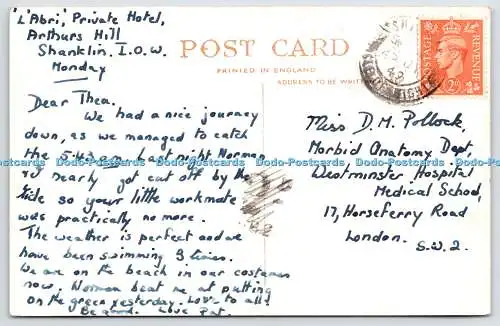 'L'Abri', Private Hotel,
Arthurs Hill
Shanklin, I.O.W.
Monday
POST CARD
PRINTED IN ENGLAND
ADDRESS TO BE WRITTEN
POSTAGE
REVENUE
2D
Dear Thea,
We had a nice journey
down, as we managed to catch
the 5.43 Last night Norman
nearly got cut off by the
tide so your little workmate
was practically no more.
The weather is perfect and we
have been swimming 3 times.
We are on the beach in our costumes
now. Norman beat me at putting
on the green yesterday. Love to all!
Be good. Love Pat.
Miss D.M. Pollock,
Morbid Anatomy Dept,
Westminster Hospital
Medical School,
17, Horseferry Road
London.
S.W.2.
Dodo-Postcards Dodo-Postcards Dodo-Postcards Dodo-Postcards Dodo-Postcards